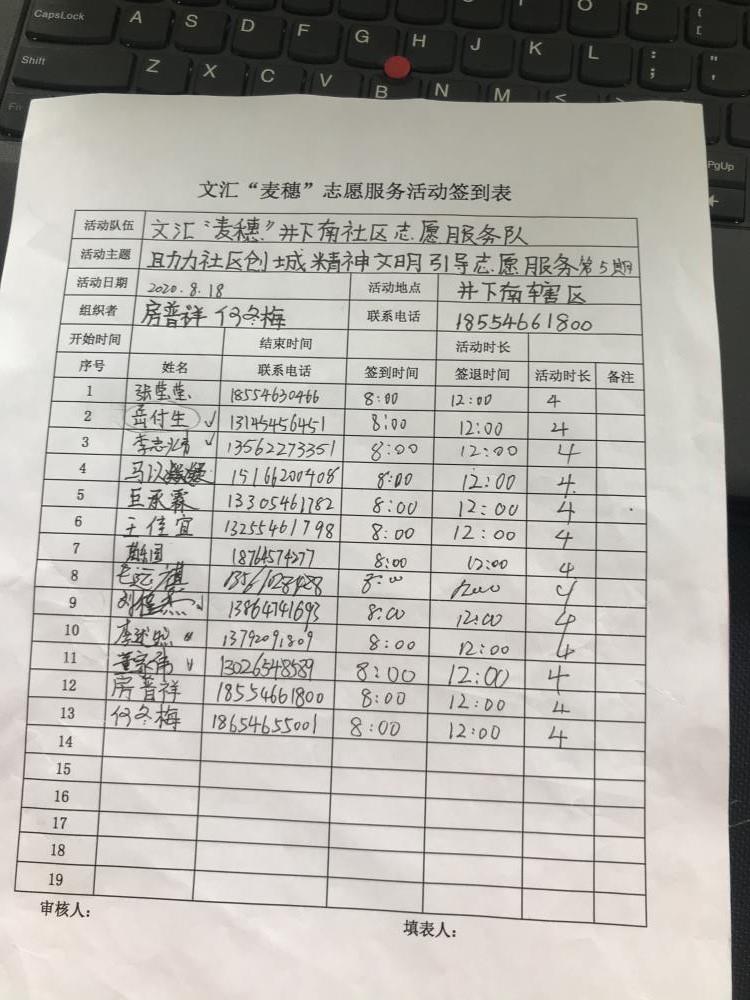 CapsLock A S D F G H J K L : ; " '
Shift Z X C V B N M <
PgUp
文汇“麦穗”志愿服务活动签到表
活动队伍 文汇“麦穗”井下南社区志愿服务队
活动主题 助力社区创城精神文明引导志愿服务第5期
活动日期 2020.8.18 活动地点 井下南辖区
组织者 房普祥 何冬梅 联系电话 18554661800
开始时间 结束时间 活动时长
序号 姓名 联系电话 签到时间 签退时间 活动时长 备注
1 张莹莹 18554630466 8:00 12:00 4
2 岳付生 ✓ 13145456451 8:00 12:00 4
3 李志 ✓ 13562273351 8:00 12:00 4
4 马以 15166200408 8:00 12:00 4
5 巨承霖 13305461782 8:00 12:00 4
6 王佳宜 13255461798 8:00 12:00 4
7 18764574277 8:00 12:00 4
8 8:00 12:00 4
9 ✓ 13864741693 8:00 12:00 4
10 13792091809 8:00 12:00 4
11 13026548589 8:00 12:00 4
12 房普祥 18554661800 8:00 12:00 4
13 何冬梅 18654655001 8:00 12:00 4
14
15
16
17
18
19
审核人： 填表人：